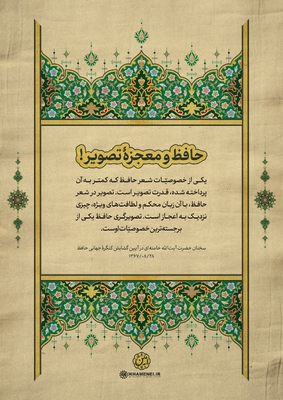 حافظ و معجزهٔ تصویر!
یکی از خصوصیّات شعر حافظ که کمتر به آن
پرداخته شده، قدرت تصویر است. تصویر در شعر
حافظ، با آن زبان محکم و لطافت‌های ویژه، چیزی
نزدیک به اعجاز است. تصویرگری حافظ یکی از
برجسته‌ترین خصوصیّات اوست.
سخنان حضرت آیت‌الله خامنه‌ای در آیین گشایش کنگرهٔ جهانی حافظ
۱۳۶۷/۰۸/۲۸
KHAMENEI.IR